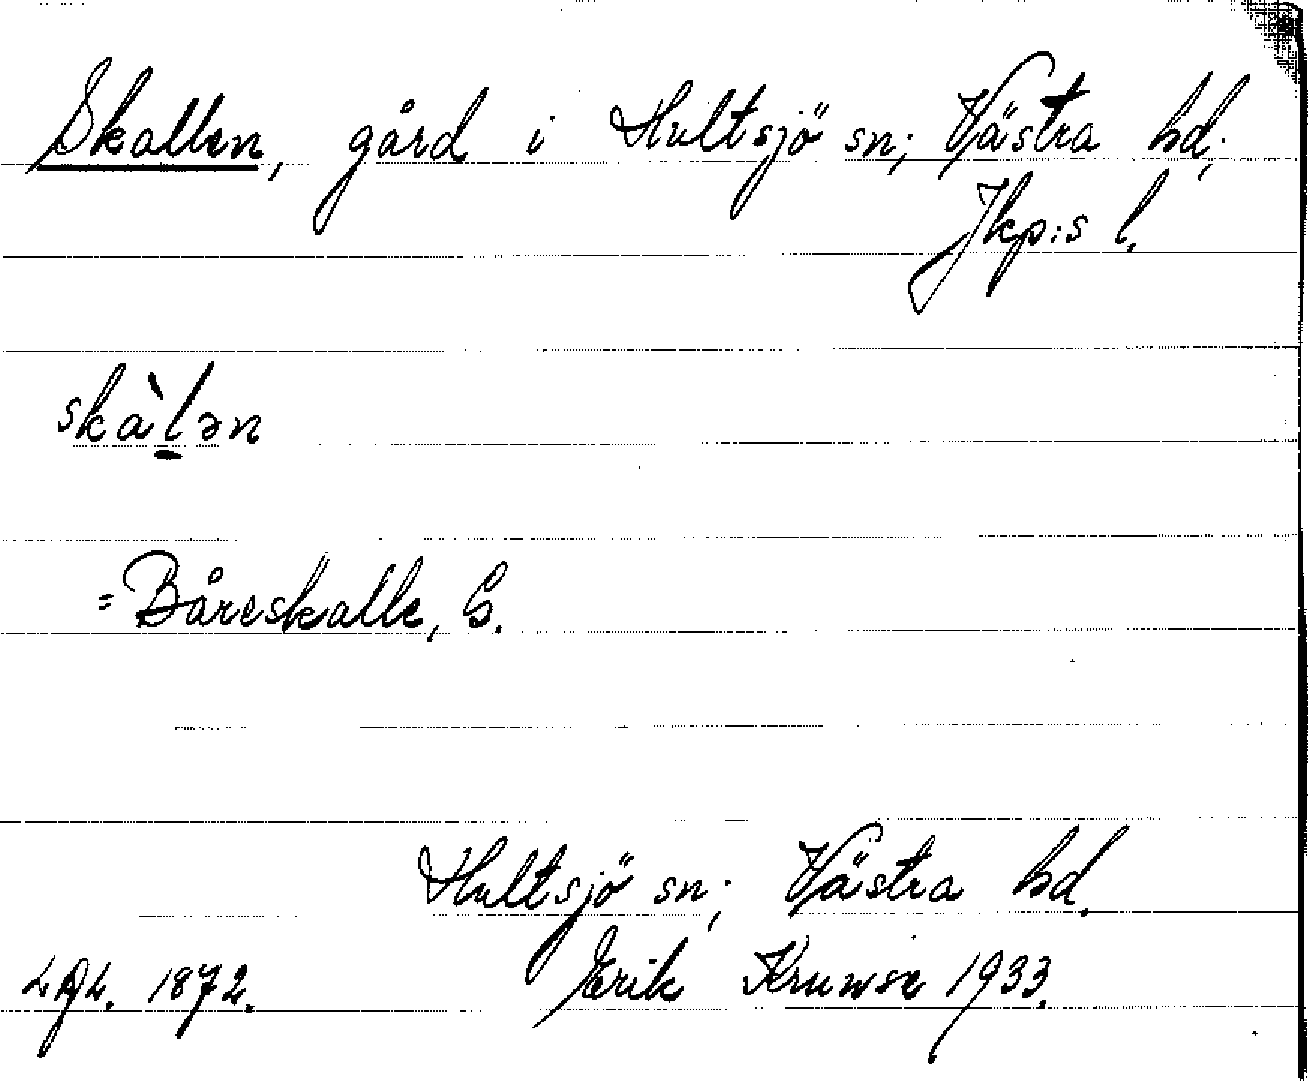 Skallen, gård i Hultsjö sn; Västra hd;
Jkp:s l.
skàl̠ən
= Båreskalle, S.
Hultsjö sn; Västra hd.
LAL. 1872. Erik Kruuse 1933.